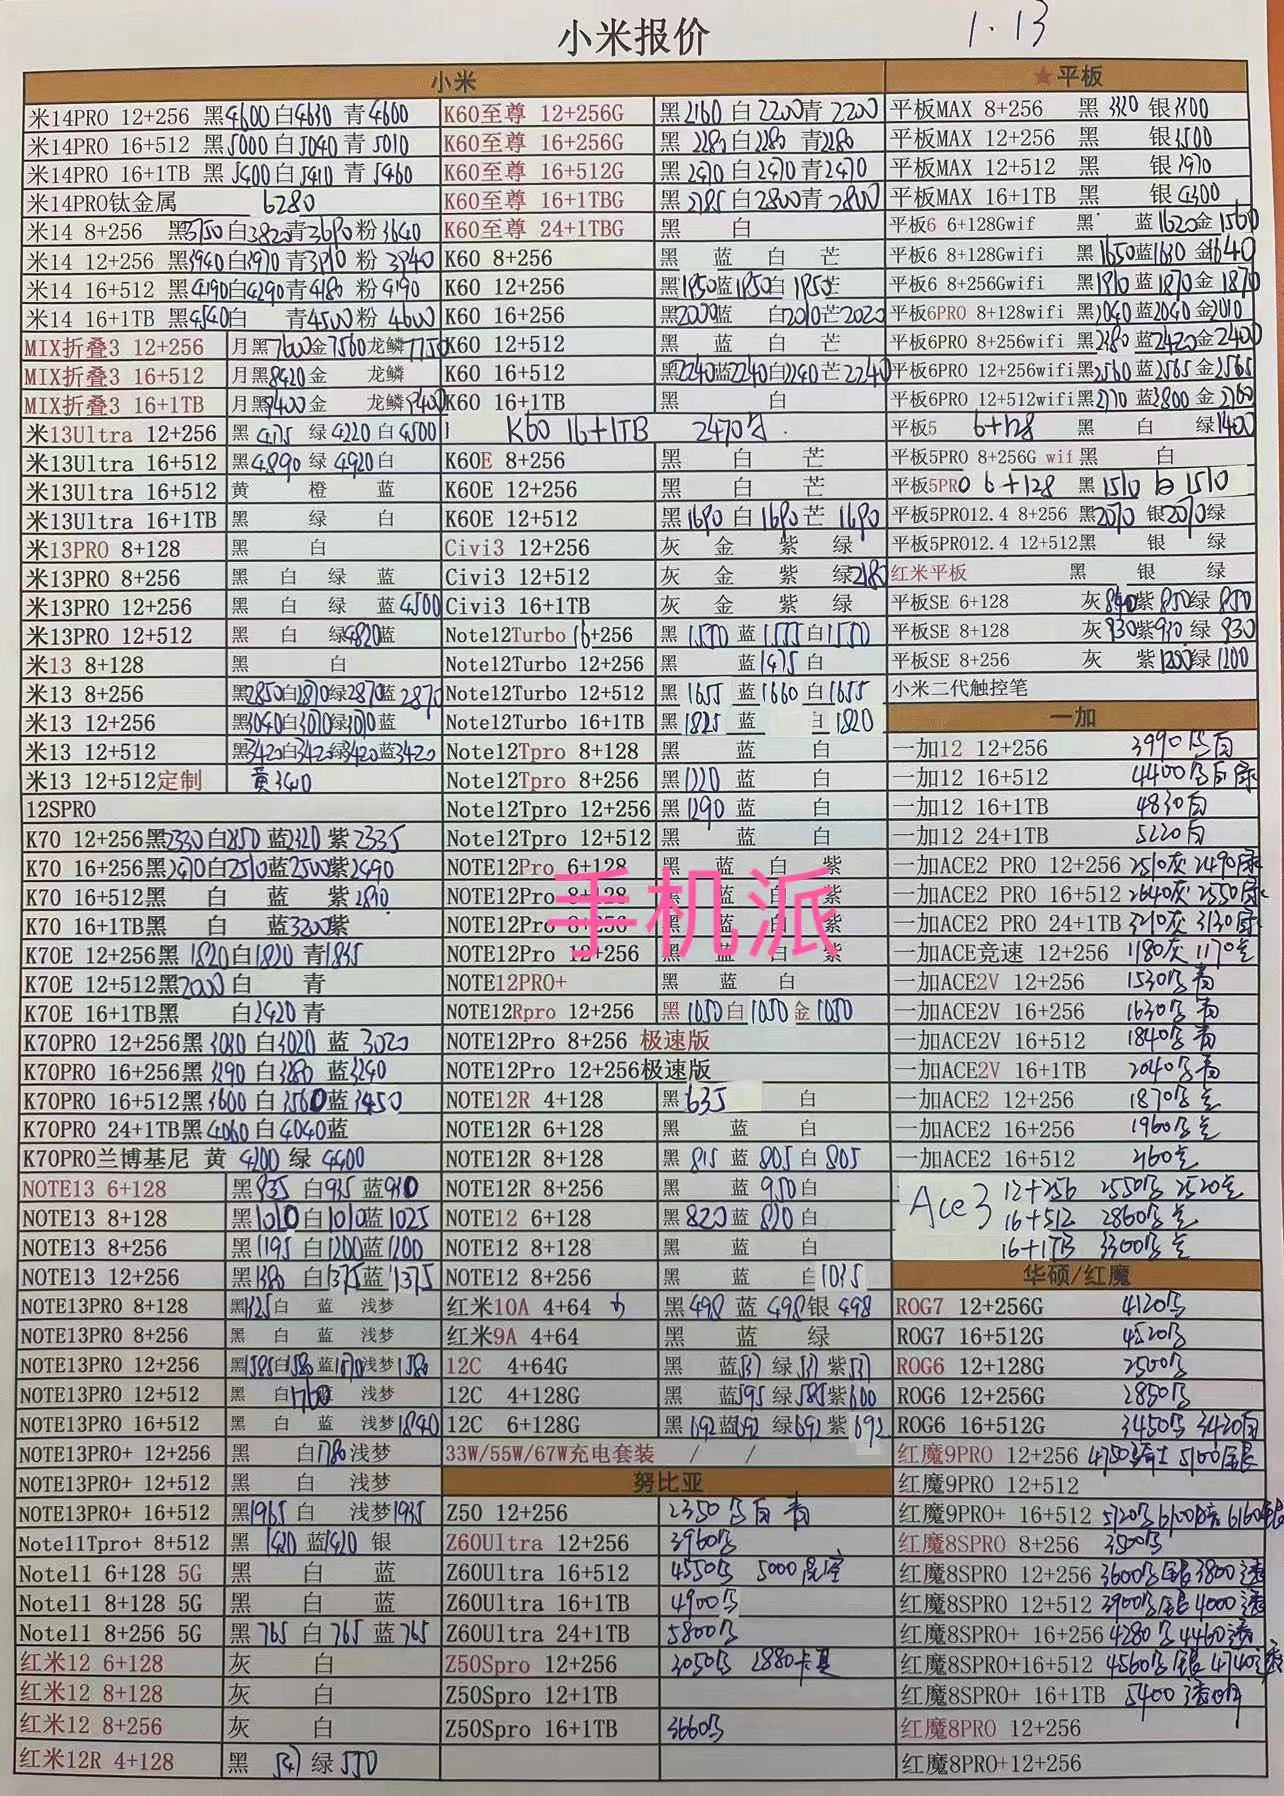 小米报价 1.13
小米
米14PRO 12+256 黑4600 白4630 青4600
米14PRO 16+512 黑5000 白5040 青5010
米14PRO 16+1TB 黑5400 白5410 青5460
米14PRO钛金属 6280
米14 8+256 黑3750 白3820 青3690 粉3640
米14 12+256 黑3940 白3970 青3910 粉3940
米14 16+512 黑4190 白4290 青4180 粉4190
米14 16+1TB 黑4540 白 青4500 粉4600
MIX折叠3 12+256 月黑7600 金7560 龙鳞7750
MIX折叠3 16+512 月黑8420 金 龙鳞
MIX折叠3 16+1TB 月黑9400 金 龙鳞9400
米13Ultra 12+256 黑4175 绿4220 白4500
米13Ultra 16+512 黑4890 绿4920 白
米13Ultra 16+512 黄 橙 蓝
米13Ultra 16+1TB 黑 绿 白
米13PRO 8+128 黑 白
米13PRO 8+256 黑 白 绿 蓝
米13PRO 12+256 黑 白 绿 蓝4500
米13PRO 12+512 黑 白 绿4820 蓝
米13 8+128 黑 白
米13 8+256 黑2850 白2870 绿2870 蓝2875
米13 12+256 黑3040 白3070 绿3070 蓝
米13 12+512 黑3420 白3420 绿3420 蓝3420
米13 12+512定制 黄3410
12SPRO
K70 12+256 黑2330 白2350 蓝2320 紫2335
K70 16+256 黑2470 白2510 蓝2500 紫2490
K70 16+512 黑 白 蓝 紫2890
K70 16+1TB 黑 白 蓝3200 紫
K70E 12+256 黑1820 白1820 青1835
K70E 12+512 黑2000 白 青
K70E 16+1TB 黑 白2420 青
K70PRO 12+256 黑3030 白3020 蓝3020
K70PRO 16+256 黑3290 白3280 蓝3240
K70PRO 16+512 黑3600 白3560 蓝3450
K70PRO 24+1TB 黑4060 白4040 蓝
K70PRO兰博基尼 黄4200 绿4400
NOTE13 6+128 黑935 白935 蓝930
NOTE13 8+128 黑1010 白1010 蓝1025
NOTE13 8+256 黑1195 白1200 蓝1200
NOTE13 12+256 黑1380 白1375 蓝1375
NOTE13PRO 8+128 黑1325 白 蓝 浅梦
NOTE13PRO 8+256 黑 白 蓝 浅梦
NOTE13PRO 12+256 黑1585 白1580 蓝1570 浅梦1580
NOTE13PRO 12+512 黑 白1760 浅梦
NOTE13PRO 16+512 黑 白 蓝 浅梦1840
NOTE13PRO+ 12+256 黑 白1780 浅梦
NOTE13PRO+ 12+512 黑 白 浅梦
NOTE13PRO+ 16+512 黑1965 白 浅梦1935
Note11Tpro+ 8+512 黑1420 蓝1420 银
Note11 6+128 5G 黑 白 蓝
Note11 8+128 5G 黑 白 蓝
Note11 8+256 5G 黑765 白765 蓝765
红米12 6+128 灰 白
红米12 8+128 灰 白
红米12 8+256 灰 白
红米12R 4+128 黑547 绿550
K60至尊 12+256G 黑2160 白2200 青2200
K60至尊 16+256G 黑2280 白2280 青2280
K60至尊 16+512G 黑2470 白2470 青2470
K60至尊 16+1TBG 黑2785 白2800 青2800
K60至尊 24+1TBG 黑 白
K60 8+256 黑 蓝 白 芒
K60 12+256 黑1950 蓝1950 白1955 芒
K60 16+256 黑2000 蓝 白2010 芒2020
K60 12+512 黑 蓝 白 芒
K60 16+512 黑2240 蓝2240 白2240 芒2240
K60 16+1TB 黑 白
K60 16+1TB 2470
K60E 8+256 黑 白 芒
K60E 12+256 黑 白 芒
K60E 12+512 黑1690 白1690 芒1690
Civi3 12+256 灰 金 紫 绿
Civi3 12+512 灰 金 紫 绿2180
Civi3 16+1TB 灰 金 紫 绿
Note12Turbo 16+256 黑1550 蓝1555 白1550
Note12Turbo 12+256 黑 蓝1475 白
Note12Turbo 12+512 黑1655 蓝1660 白1655
Note12Turbo 16+1TB 黑1825 蓝 白1820
Note12Tpro 8+128 黑 蓝 白
Note12Tpro 8+256 黑1220 蓝 白
Note12Tpro 12+256 黑1290 蓝 白
Note12Tpro 12+512 黑 蓝 白
NOTE12Pro 6+128 黑 蓝 白 紫
NOTE12Pro 8+128 黑 蓝 白 紫
NOTE12Pro 8+256 黑 蓝 白 紫
NOTE12Pro 12+256 黑 蓝 白 紫
手机派
NOTE12PRO+ 黑 蓝 白
NOTE12Rpro 12+256 黑1050 白1050 金1050
NOTE12Pro 8+256 极速版
NOTE12Pro 12+256极速版
NOTE12R 4+128 黑635 白
NOTE12R 6+128 黑 蓝 白
NOTE12R 8+128 黑815 蓝805 白805
NOTE12R 8+256 黑 蓝950 白
NOTE12 6+128 黑820 蓝820 白
NOTE12 8+128 黑 蓝 白
NOTE12 8+256 黑 蓝 白1035
红米10A 4+64 黑498 蓝498 银498
红米9A 4+64 黑 蓝 绿
12C 4+64G 黑 蓝537 绿537 紫537
12C 4+128G 黑 蓝595 绿585 紫600
12C 6+128G 黑692 蓝692 绿692 紫692
33W/55W/67W充电套装 / /
努比亚
Z50 12+256 2350 白 青
Z60Ultra 12+256 3960
Z60Ultra 16+512 4550 5000
Z60Ultra 16+1TB 4900
Z60Ultra 24+1TB 5800
Z50Spro 12+256 3050 2880卡其
Z50Spro 12+1TB
Z50Spro 16+1TB 3660
★平板
平板MAX 8+256 黑3320 银3300
平板MAX 12+256 黑 银3500
平板MAX 12+512 黑 银3970
平板MAX 16+1TB 黑 银4300
平板6 6+128Gwif 黑 蓝1620 金1560
平板6 8+128Gwifi 黑1650 蓝1630 金1640
平板6 8+256Gwifi 黑1910 蓝1870 金1870
平板6PRO 8+128wifi 黑2040 蓝2040 金2010
平板6PRO 8+256wifi 黑2380 蓝2420 金2400
平板6PRO 12+256wifi黑2560 蓝2565 金2565
平板6PRO 12+512wifi黑2770 蓝2800 金2760
平板5 6+128 黑 白 绿1400
平板5PRO 8+256G wif 黑 白
平板5PRO 6+128 黑1510 白1510
平板5PRO12.4 8+256 黑2070 银2070 绿
平板5PRO12.4 12+512黑 银 绿
红米平板 黑 银 绿
平板SE 6+128 灰840 紫850 绿850
平板SE 8+128 灰930 紫930 绿930
平板SE 8+256 灰 紫1200 绿1200
小米二代触控笔
一加
一加12 12+256 3990 白
一加12 16+512 4400 白
一加12 16+1TB 4830白
一加12 24+1TB 5220白
一加ACE2 PRO 12+256 2510灰 2490绿
一加ACE2 PRO 16+512 2640灰 2550绿
一加ACE2 PRO 24+1TB 3210灰 3130绿
一加ACE竞速 12+256 1180灰 1170
一加ACE2V 12+256 1530 青
一加ACE2V 16+256 1630 青
一加ACE2V 16+512 1840 青
一加ACE2V 16+1TB 2040 青
一加ACE2 12+256 1870
一加ACE2 16+256 1960
一加ACE2 16+512 2160
Ace3 12+256 2550 2520
16+512 2860
16+1TB 3300
华硕/红魔
ROG7 12+256G 4120
ROG7 16+512G 4520
ROG6 12+128G 2500
ROG6 12+256G 2850
ROG6 16+512G 3450 3420白
红魔9PRO 12+256 4750骑士 5100银
红魔9PRO 12+512
红魔9PRO+ 16+512 5720 6100 6160银
红魔8SPRO 8+256 3500
红魔8SPRO 12+256 3600 银3800透
红魔8SPRO 12+512 3900 银4000透
红魔8SPRO+ 16+256 4280 4460透
红魔8SPRO+16+512 4560 银4740透
红魔8SPRO+ 16+1TB 5400透明
红魔8PRO 12+256
红魔8PRO+12+256